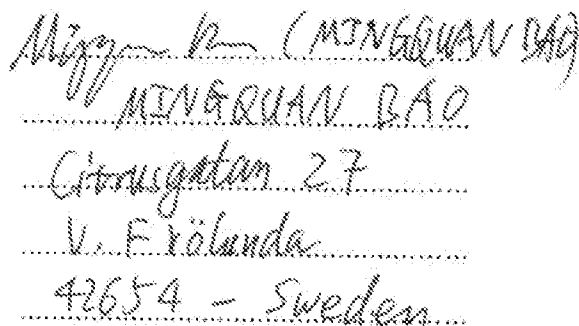 (MINGQUAN BAO)
MINGQUAN BAO
Citrusgatan 27
V. Frölunda
42654 - Sweden